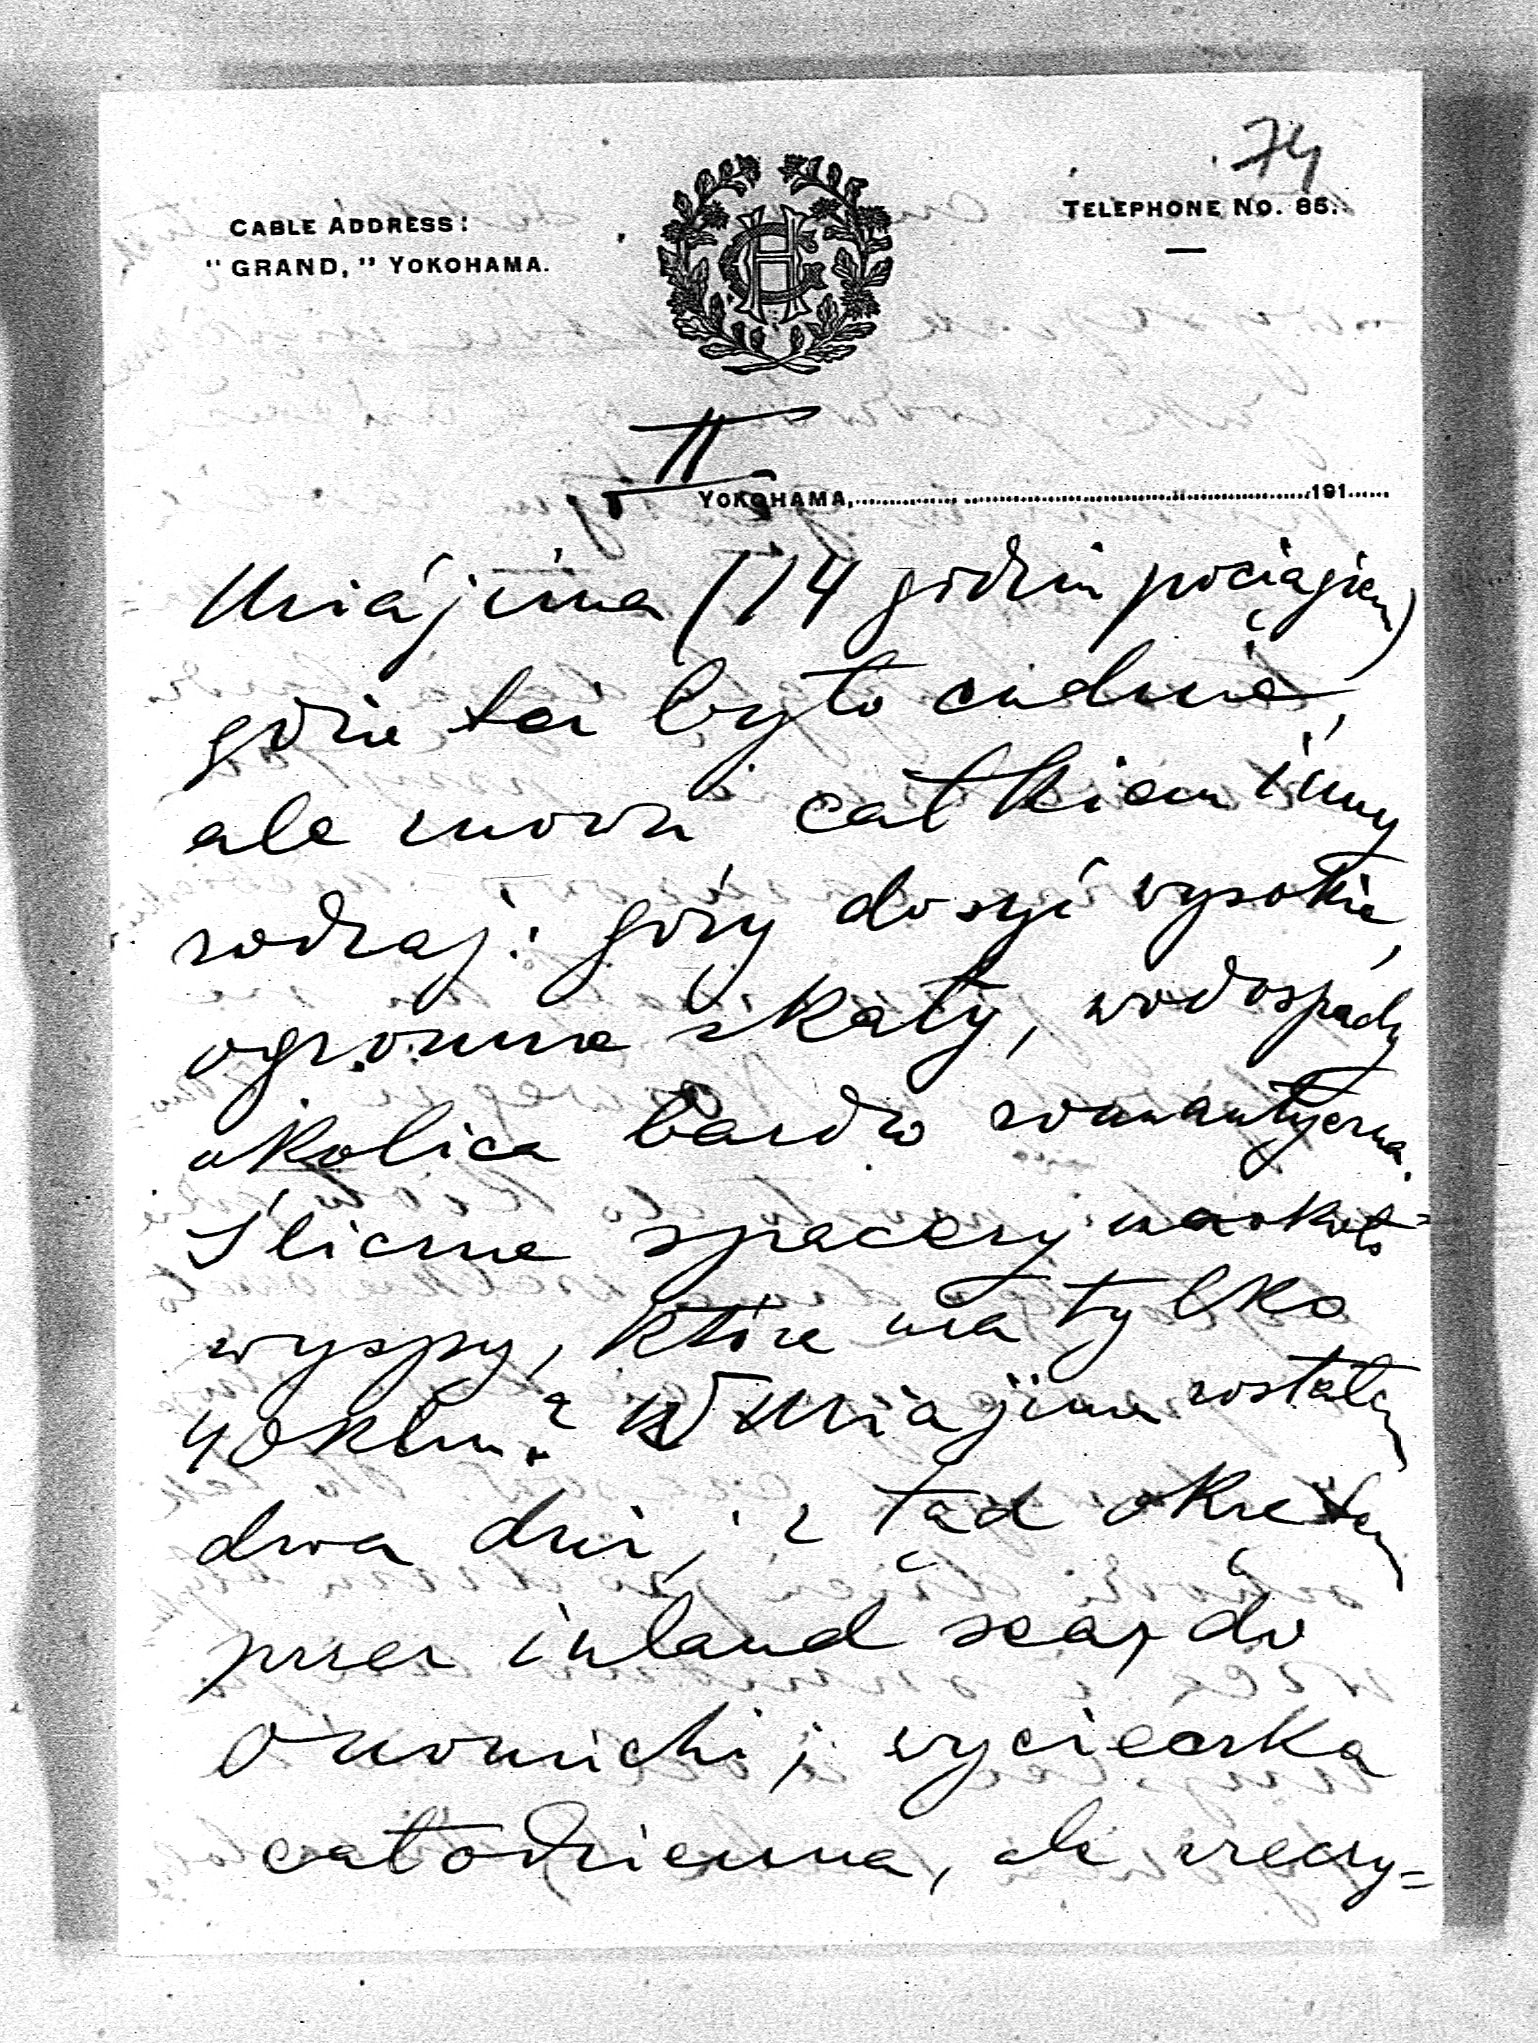 74
CABLE ADDRESS:
TELEPHONE NO. 85.
"GRAND," YOKOHAMA.
II
YOKOHAMA, 191
Miájima (14 godzin pociągiem)
gdzie też było cudnie,
ale znowu całkiem inny
rodzaj: góry dosyć wysokie,
ogromne skały, wodospady
okolica bardzo romantyczna.
Śliczne spacery naokoło
wyspy, która ma tylko
40 klm.² W Miajima zostałem
dwa dni; z tąd okrętem
przez inland sea, do
Onomichi; wycieczka
całodzienna, ale rzeczy=